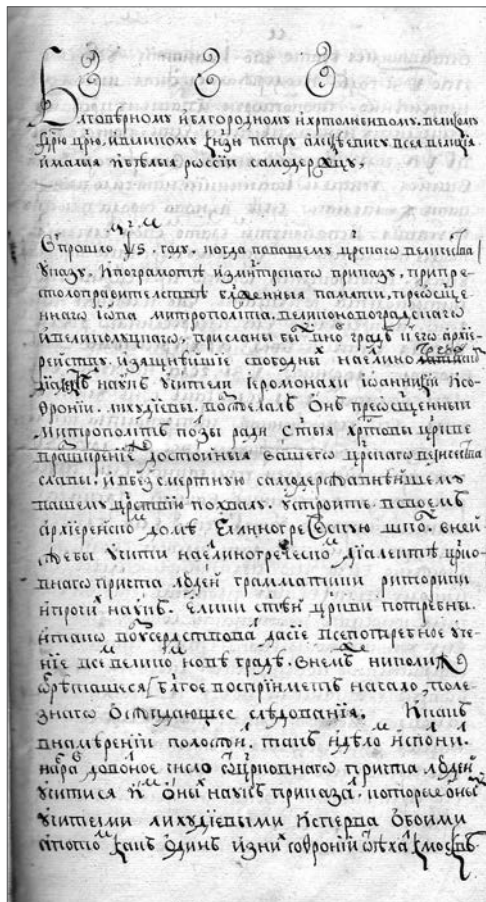 Блговѣрному и блгородному и хртолюбивому, великому
Гдрю црю, и великому кнзю петру алеѯѣевичу всея великія
и малыя и бѣлыя россіи самодержцу,
В прошло ѱѕ, году, когда по вашему црскаго величества
указу, и по грамотѣ из мнтрскаго приказу, при пре
столоправителствѣ блженныя памяти, преѡсще
ннаго іѡва митрополіта, великоновоградскаго
и великолуцкаго, присланы бы в но градъ к его архіе
рейству изящнѣйшие свободны на еллино
діалектѣ наукъ учители іеромонахи іѡанникіи и со
ѳроніи, лихудіевы, возжелалъ ѻнъ преѡсщенный
митрополітъ ползы ради стыя хртовы цркве
в ращирение достойныя вашего црскаго величества
славы, и в безсмертную самодержавнѣйшему
вашему црствію похвалу, устроить в своемъ
архіерейско домѣ еллиногреческую шко, в ней
же бы учити на еллиногреческо діалектѣ црко
внаго причта людей грамматики риторики
и прочи наукъ. елики стѣй цркви потребны.
и тако воусердствова дасіе всепотребное уче
ніе в велико новѣ градѣ, в немъ николи
ѡбрѣташееся благое восприиметъ начало, поле
знаго ѡжидающее слѣдованія. И какъ
в намѣреніи положи, такъ и дѣло исполни,
набра доволное число ѿ црковнаго причта людей
учитися и ѻны наукъ приказа, которые ѻны
учители лихудіевыми исперва ѻбоими
а пото какъ ѻдинъ из ни соѳроній ѿѣха к москвѣ